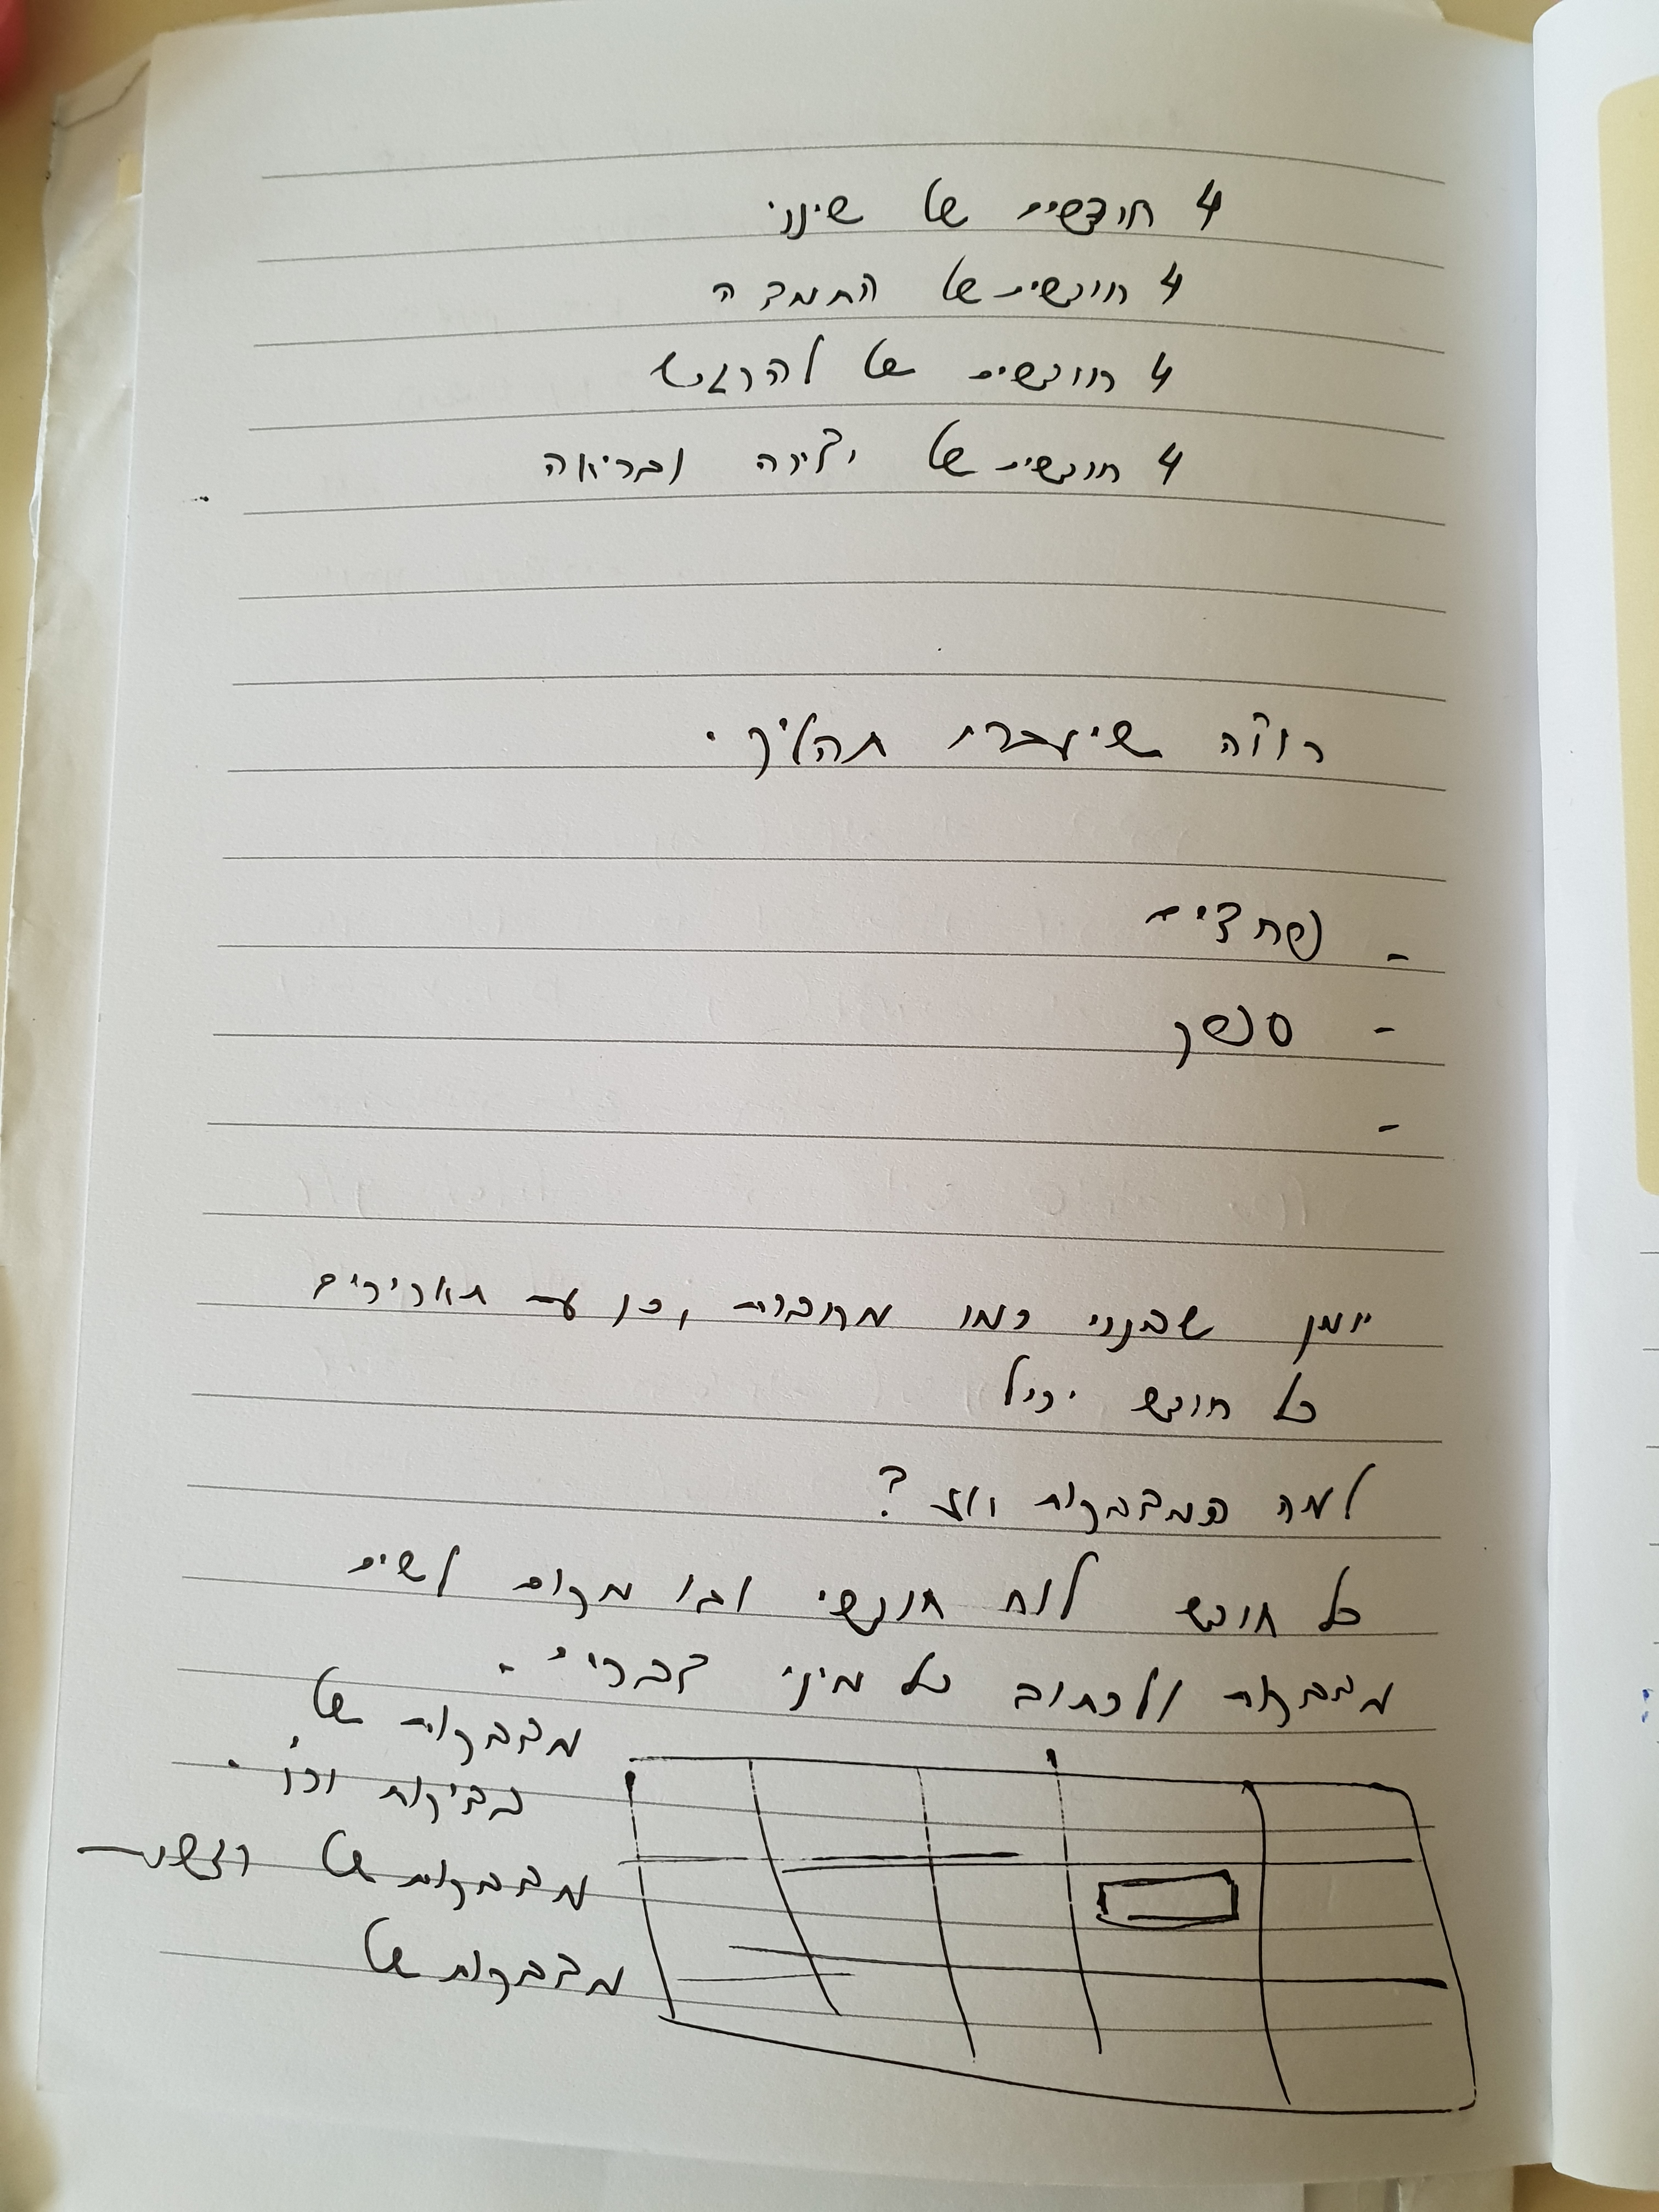 4 חודשים של שינוי
4 חודשים של התמדה
4 חודשים של להרגיש
4 חודשים של יצירה ובריאה
רוצה שיעברו תהליך.
- נפח ציים
-
-
יומן שבנוי כמו מחברת, כן עם תאריכים
כל חודש יכיל
למה המדבקות ואז?
כל חודש לוח חודשי ובו מקום לשים
מדבקות ולכתוב כל מיני דברים.
מדבקות של
בדיקות וכו'.
מדבקות של רגשות
מדבקות של